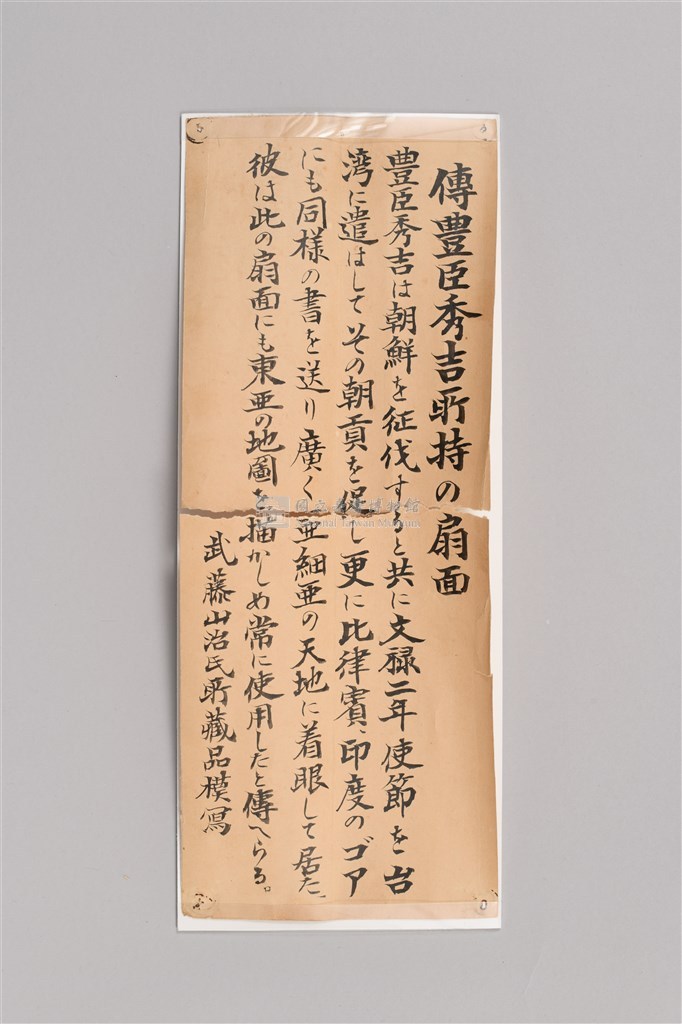 傳豊臣秀吉所持の扇面
豊臣秀吉は朝鮮を征伐すると共に文禄二年使節を台
湾に遣はしてその朝貢を促し更に比律賓、印度のゴア
にも同様の書を送り廣く亜細亜の天地に着眼して居た、
彼は此の扇面にも東亜の地圖を描かしめ常に使用したと傳へらる。
武藤山治氏所藏品模寫
國立臺灣博物館
National Taiwan Museum